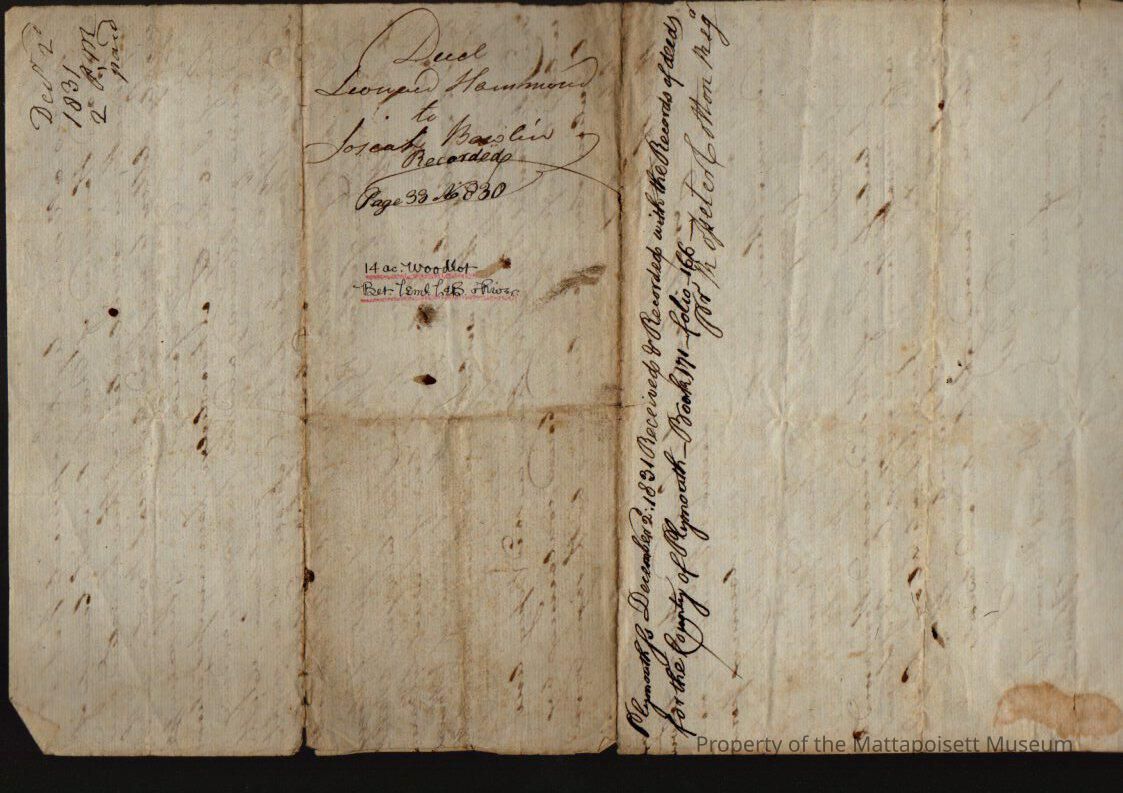 Decr 2d
1831
2h P, M
paid
Deed
Leonard Hammond
to
Josiah
Recorded
Page 33 No 830
14 ac: Woodlot
Bet
Plymouth ss December 2: 1831 Received & Recorded with the Records of deeds
for the County of Plymouth - Book 171 - folio 166
pr Rosseter Cotton Regr
Property of the Mattapoisett Museum